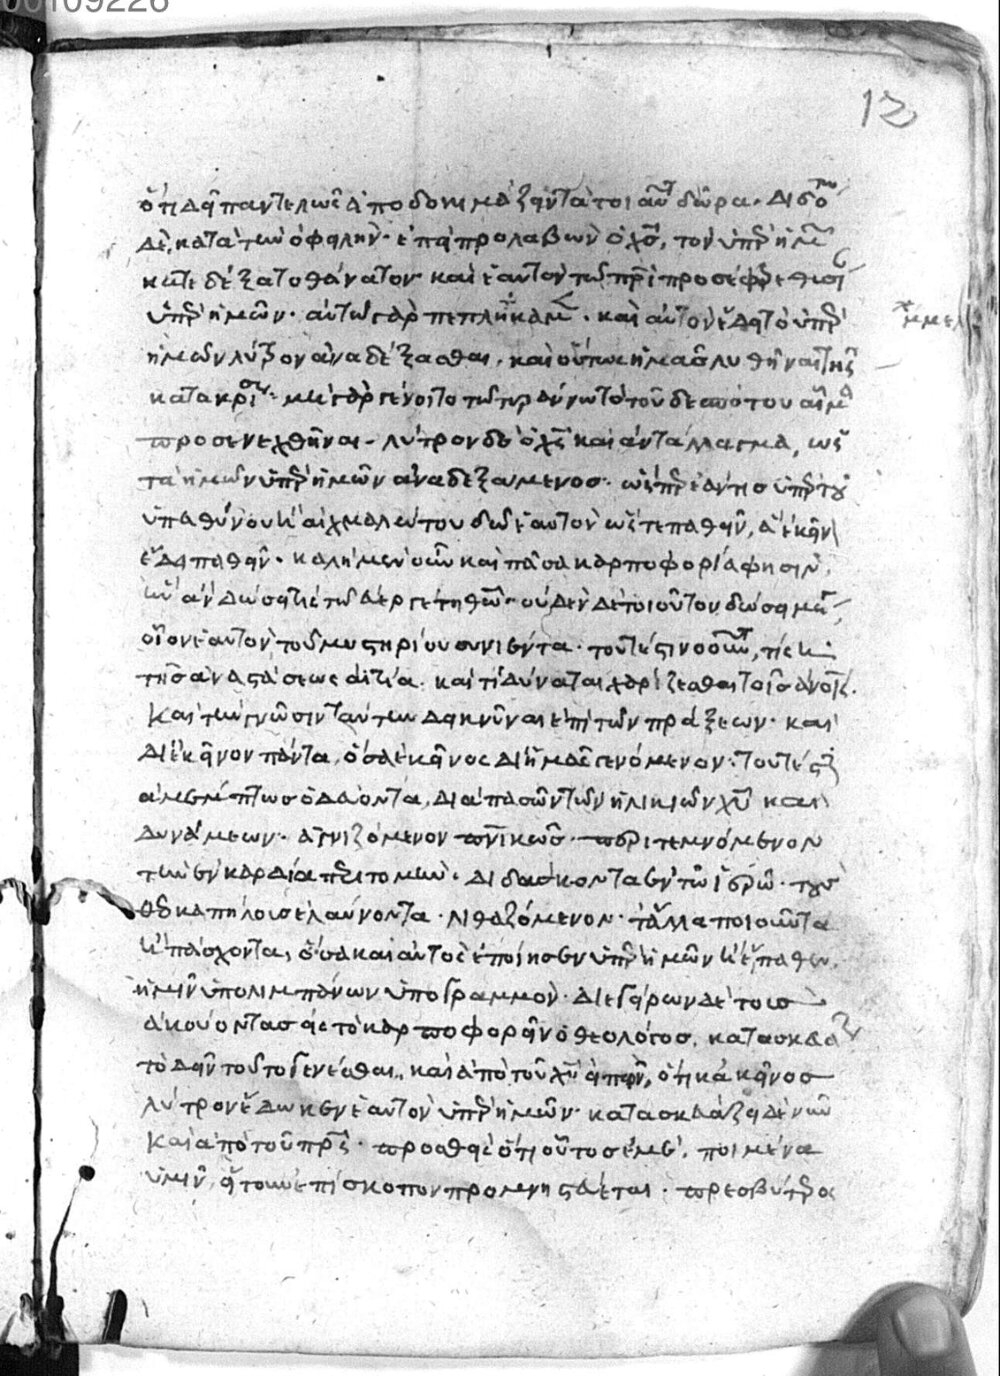 00109226
12
ὅτι δεῖ παντελῶς ἀποδοκιμάζειν τὰ τοιαῦτ δῶρα. διδο
δὲ, κατὰ τῶν ὀφειλὴν. ἐπεὶ προλαβὼν ὁ χς, τὸν ὑπὲρ ἡμ
κατεδέξατο θάνατον. καὶ ἑαυτὸν τῶ πρι προσέφερε θυσι
ὑπὲρ ἡμῶν. αὐτῶ γὰρ πεπλημ καμ. καὶ αὐτὸν ἔδει τὸ ὑπὲρ
μμελ
ἡμῶν λύτρον ἀναδέξασθαι. καὶ οὕτως ἡμᾶς λυθῆναι τῆς
κατακρίσ. μὴ γὰρ γένοιτο τῶ τυράννω τὸ τοῦ δεσπότου αἷμα
προσενεχθῆναι. λύτρον δὲ ὁ χς καὶ ἀντάλλαγμα, ὡς
τὰ ἡμῶν ὑπὲρ ἡμῶν ἀναδεξάμενος. ὑπὲρ τοῦ
ὑπευθύνου κ αἰχμαλώτου δῶ ἑαυτὸν ὥστε παθεῖν, ἃ ἐκεῖν
ἔδει παθεῖν. καλὴ μὲν οὖν καὶ πᾶσα καρποφορία φησιν,
ἣν ἂν δώσ οὐδὲν δὲ τοιοῦτον δώσομεν
οἷον ἑαυτὸν τοῦ μυστηρίου συνιέντα. τουτέστι νοοῦντ, τίς ἡ
τῆς ἀναστάσεως αἰτία. καὶ τί δύναται χαρίζεσθαι τοῖς ἀνοις.
καὶ τὴν γνῶσιν ταύτην δεικνῦναι ἐπὶ τῶν πράξεων. καὶ
δι' ἐκεῖνον πάντα, ὅσα ἐκεῖνος δι' ἡμᾶς γενόμενον. τουτέστι
ἀμέμπτως ὁδεύοντα, διὰ πασῶν τῶν ἡλικιῶν χυ καὶ
δυνάμεων. ἁγνιζόμενον πνικῶς. περιτεμνόμενον
τὴν ἐν καρδία περιτομὴν. διδάσκοντα ἐν τῶ ἱερῶ. τοὺς
θεοκαπήλους ἐλαύνοντα. λιθαζόμενον. τἄλλα ποιοῦντα
κ πάσχοντα, ὅσα καὶ αὐτὸς ἐποίησεν ὑπὲρ ἡμῶν κ ἔπαθεν.
ἡμῖν ὑπολιμπάνων ὑπογραμμὸν. διεγείρων δὲ τοὺς
ἀκούοντας εἰς τὸ καρποφορεῖν ὁ θεολόγος, κατασκευάζ
τὸ δεῖν τοῦτο γενέσθαι, καὶ ἀπὸ τοῦ χυ εἰπεῖν, ὅτι κἀκεῖνος
λύτρον ἔδωκεν ἑαυτὸν ὑπὲρ ἡμῶν. κατασκευάζει δὲ νῦν
καὶ ἀπὸ τοῦ πρς. προσθεὶς ὅτι οὗτος ἐμὲ, ποιμένα
ὑμῖν, ἤτοι ἐπίσκοπον προμνηστεύεται. πρεσβύτερος